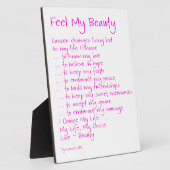 Feel My Beauty
Cancer changes living but
in my life I choose
... to know my love
... to believe in hope
... to keep my faith
... to embrace my grace
... to build my friendships
... to keep my sweet memories
... to accept my grace
... to embrace my courage
I Choose My Life
My Life, My Choice
Love ~ Beauty